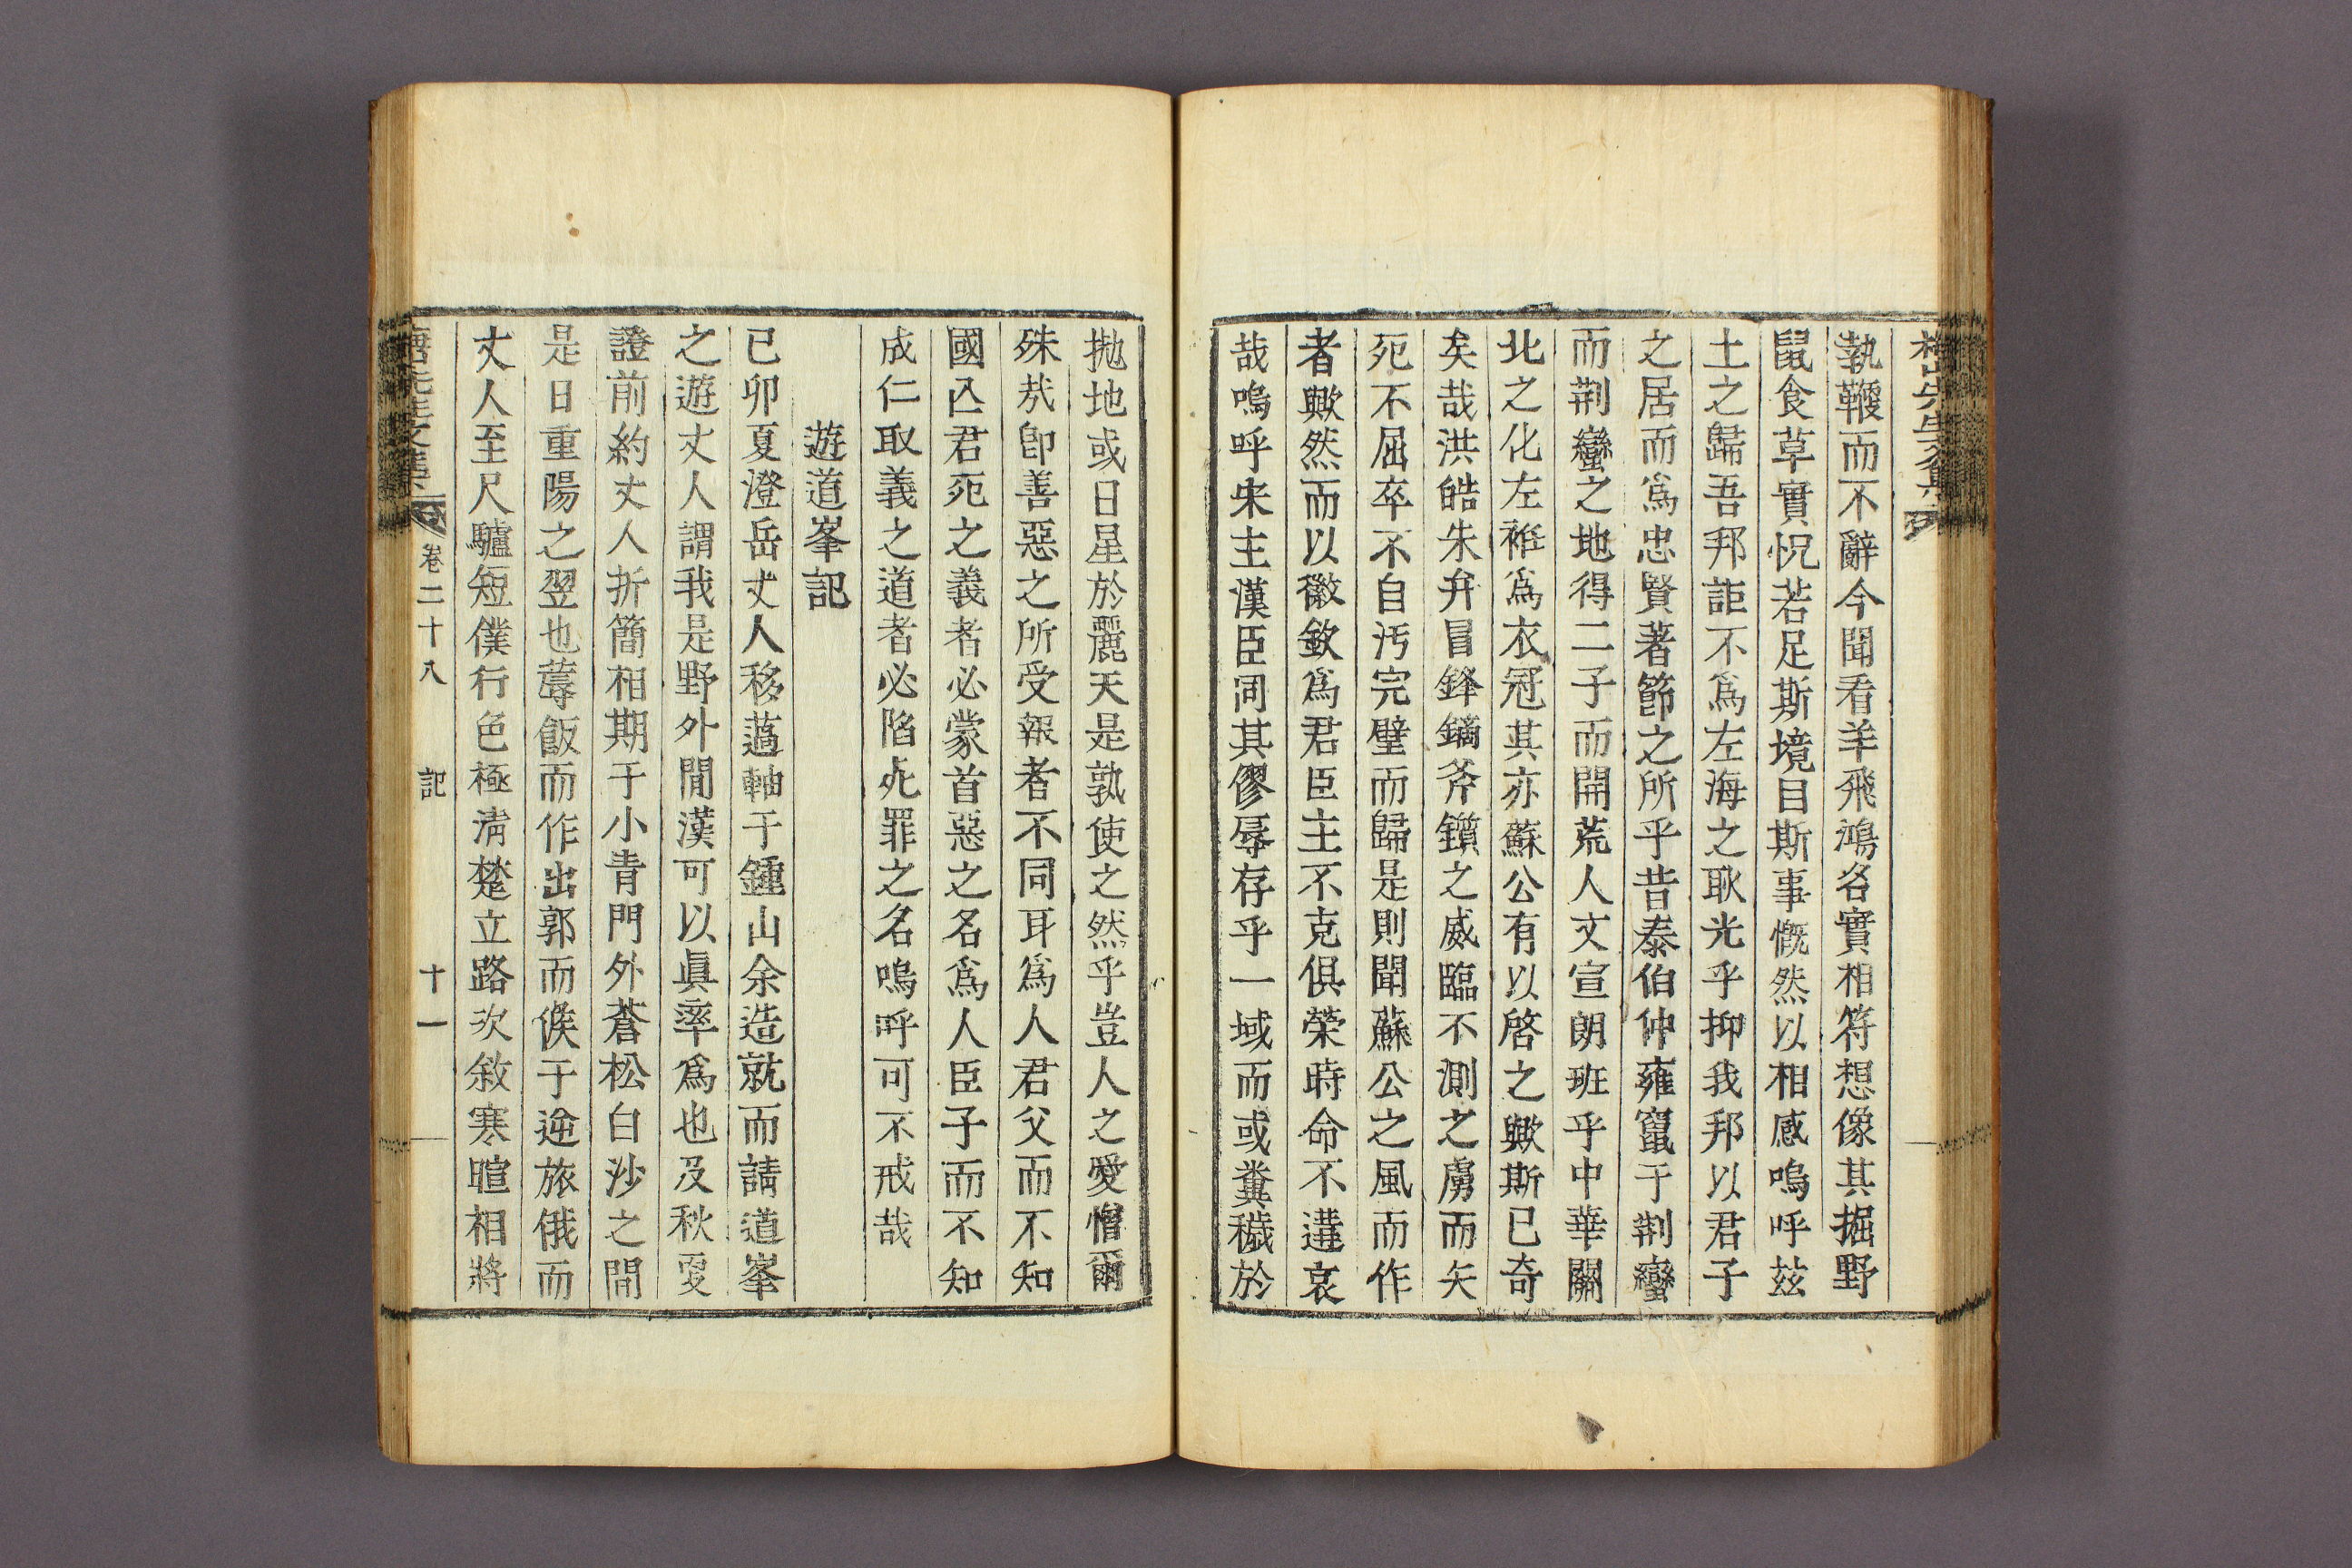 執鞭而不辭今聞看羊飛鴻名實相符想像其掘野
鼠食草實怳若足斯境目斯事慨然以相感嗚呼玆
土之歸吾邦詎不爲左海之耿光乎抑我邦以君子
之居而爲忠賢著節之所乎昔泰伯仲雍竄于荆蠻
而荆蠻之地得二子而開荒人文宣朗班乎中華關
北之化左袵爲衣冠其亦蘇公有以啓之歟斯已奇
矣哉洪皓朱弁冒鋒鏑斧鑕之威臨不測之虜而矢
死不屈卒不自汚完璧而歸是則聞蘇公之風而作
者歟然而以徽欽爲君臣主不克俱榮時命不遘哀
哉嗚呼宋主漢臣同其僇辱存乎一域而或糞穢於
拋地或日星於麗天是孰使之然乎豈人之愛憎爾
殊㢤卽善惡之所受報者不同耳爲人君父而不知
國亾君死之義者必蒙首惡之名爲人臣子而不知
成仁取義之道者必陷死罪之名嗚呼可不戒哉
遊道峯記
已卯夏澄岳丈人移薖軸于鍾山余造就而請道峯
之遊丈人謂我是野外閒漢可以眞率爲也及秋更
證前約丈人折簡相期于小青門外蒼松白沙之間
是日重陽之翌也蓐飯而作出郭而候于逆旅俄而
丈人至尺驢短僕行色極淸楚立路次敘寒暄相將
先生文集 卷二十八 記 十一